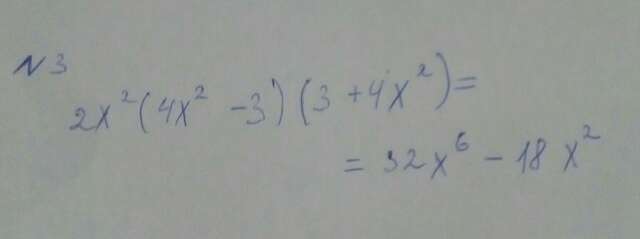 N 3
2x²(4x² -3)(3+4x²)=
= 32x⁶ - 18x²